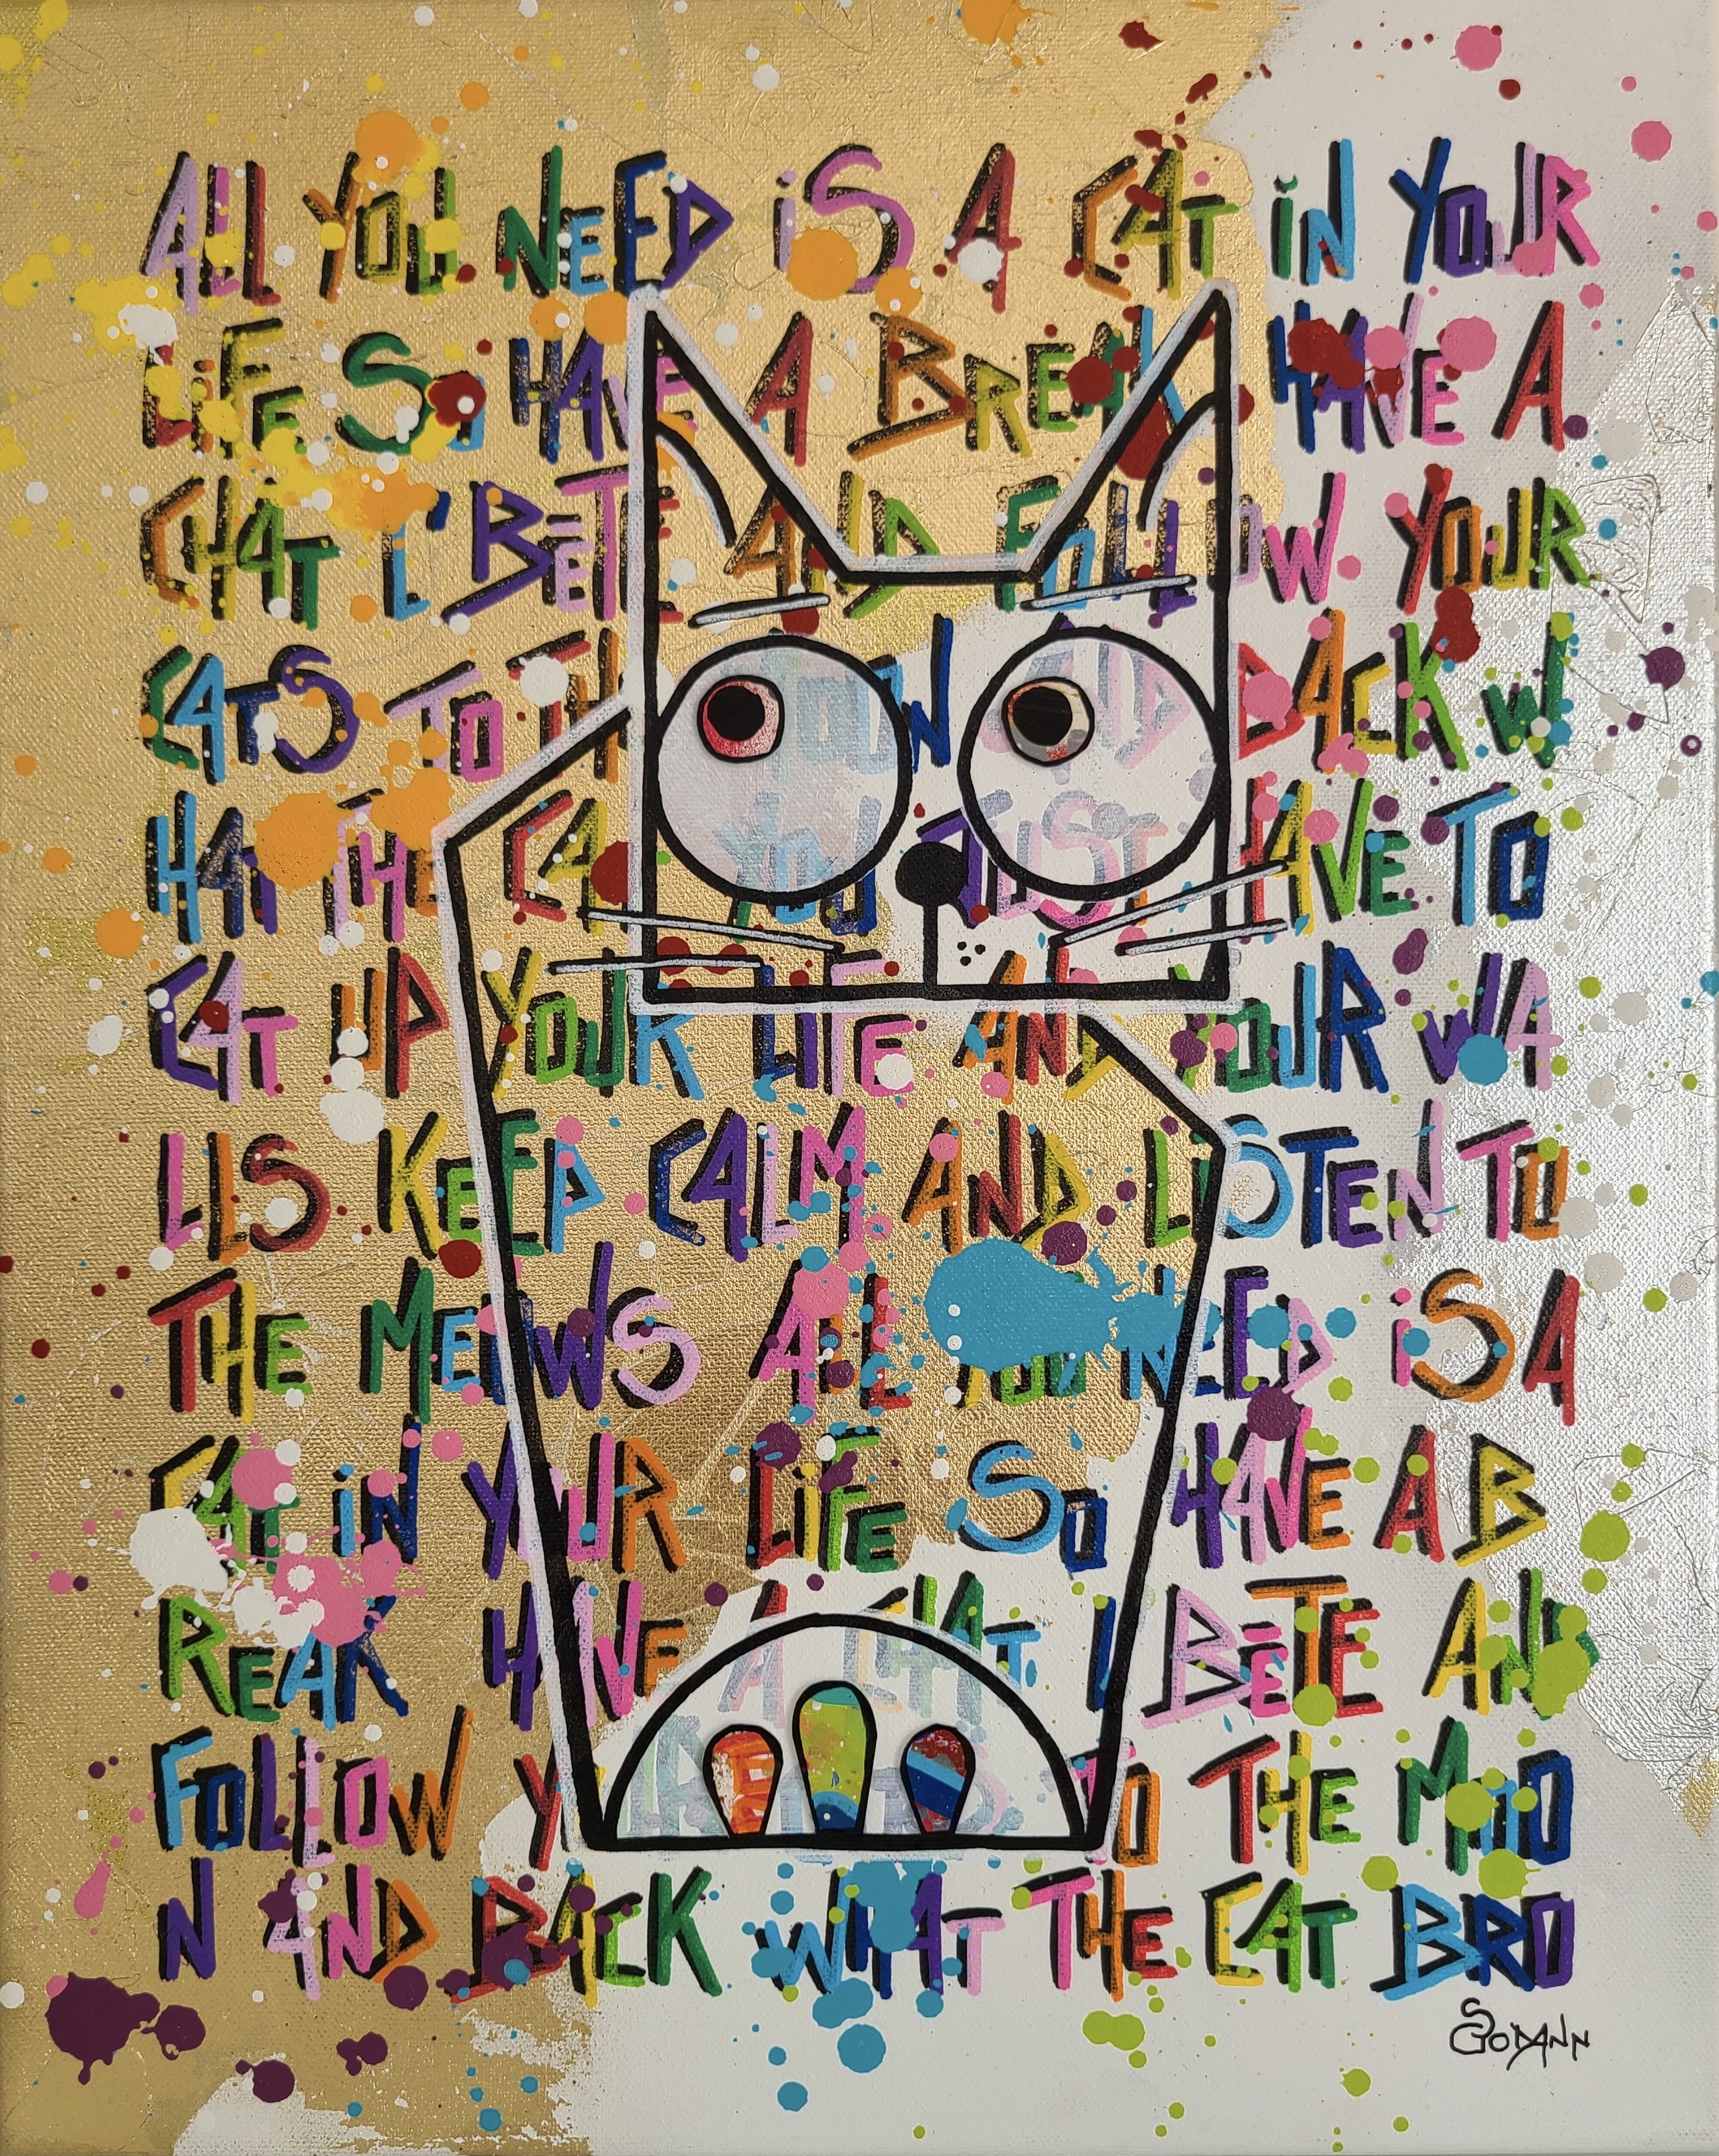 ALL YOU NEED iS A CAT iN YOUR
LiFE SO HAVE A BREAK HAVE A
CHAT L'BĒTE AND FOLLOW YOUR
CATS TO THE MOON AND BACK W
HAT THE CAT YOU JUST HAVE TO
CAT UP YOUR LIFE AND YOUR WA
LLS KEEP CALM AND LiSTEN TO
THE MEOWS ALL YOU NEED iS A
CAT iN YOUR LiFE SO HAVE A B
REAK HAVE A CHAT L BĒTE AND
FOLLOW YOUR CATS TO THE MOO
N AND BACK WHAT THE CAT BRO
SGODANN